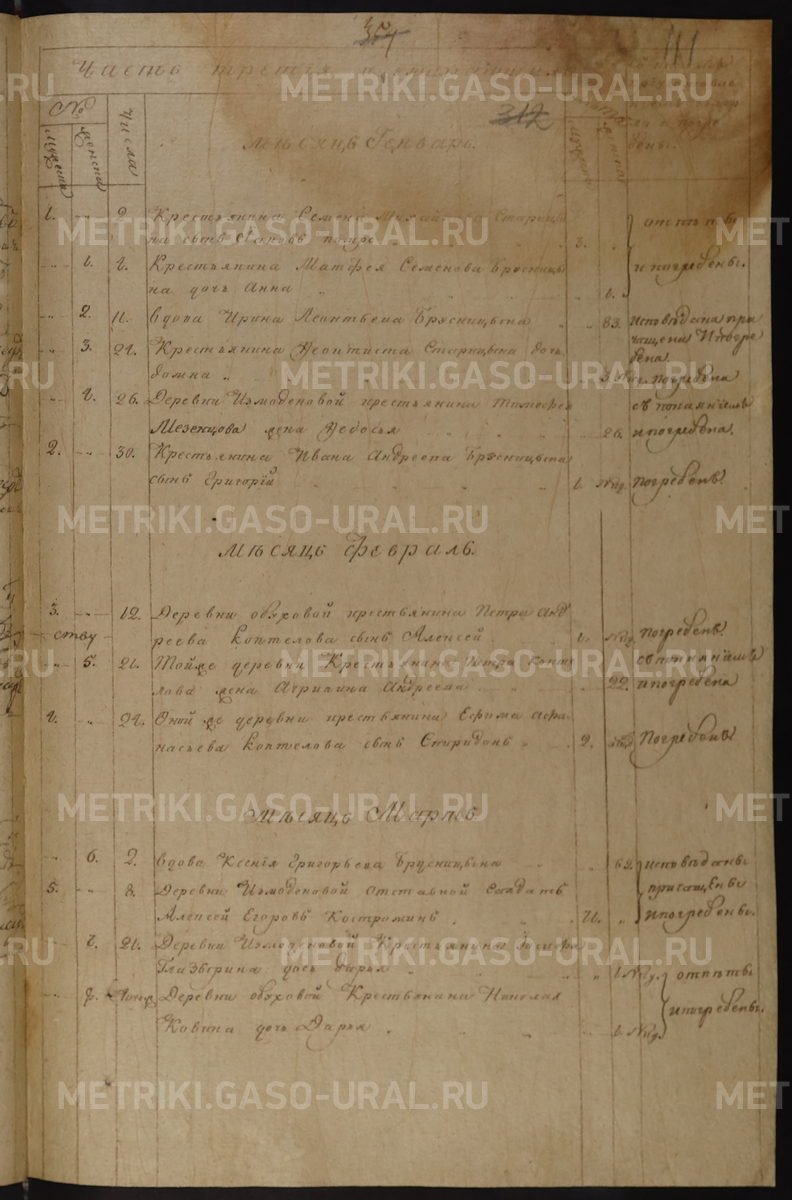 354
111
Часть третія
312
№
мужеска
женска
числа
мѣсяцъ Генварь.
1. " 2 Крестьянина Семена Михайлова Старицы
на сынъ помре 3.
отпѣты
и погребены.
" 1. 4. Крестьянина Матфея Семенова Брусницы
на дочь Анна 1.
" 2. 11. вдова Ирина Леонтьева Брусницына 83. исповѣдана при
чащена и погре
бена.
" 3. 24. Крестьянина Феоктиста Старицына дочь
домна " 3 погребена
" 4. 26. Деревни Измоденовой крестьянина Тимофея
Мезенцова жена Федосья 26.
съ покаяніемъ
и погребена.
2. " 30. Крестьянина Ивана Андреева Брусницына
сынъ Григорій 1. нед. погребенъ.
мѣсяцъ Февраль.
3. " 12. Деревни обуховой крестьянина Петра Анд
ству
реева Коптелова сынъ Алексей 1. нед. погребенъ.
" 5. 21. Тойже деревни Крестьянина Петра Копте
лова жена Агрипина Андреева 22.
съ покаяніемъ
и погребена
4. " 24. Оной же деревни крестьянина Ефима Афа
насьева Коптелова сынъ Спиридонъ " 2. нед. Погребенъ
Мѣсяцъ Мартъ
" 6. 2. вдова Ксенія Григорьева Брусницына 62.
исповѣданы
причащены
и погребены.
5. " 8. Деревни Измоденовой отставной Солдатъ
Алексей Егоровъ Костроминъ 71. "
" 7. 21. Деревни Измоденовой Крестьянина
Глазырина дочь дарья " 1 нед.
отпѣты
и погребены.
" 8. Деревни обуховой Крестьянина Николая
Ковина дочь Дарья 1. нед.
METRIKI.GASO-URAL.RU